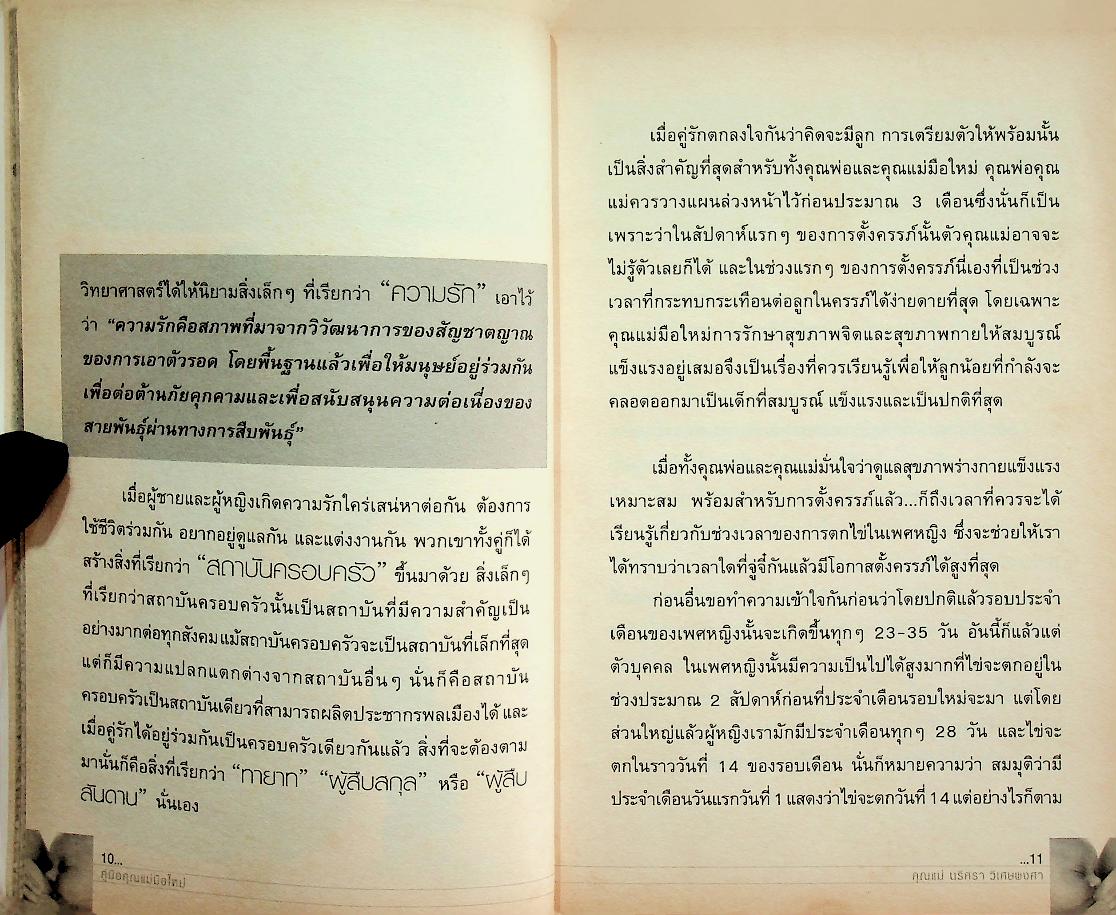 วิทยาศาสตร์ได้ให้นิยามสิ่งเล็กๆ ที่เรียกว่า “ความรัก” เอาไว้
ว่า “ความรักคือสภาพที่มาจากวิวัฒนาการของสัญชาตญาณ
ของการเอาตัวรอด โดยพื้นฐานแล้วเพื่อให้มนุษย์อยู่ร่วมกัน
เพื่อต่อต้านภัยคุกคามและเพื่อสนับสนุนความต่อเนื่องของ
สายพันธุ์ผ่านทางการสืบพันธุ์”
เมื่อผู้ชายและผู้หญิงเกิดความรักใคร่เสน่หาต่อกัน ต้องการ
ใช้ชีวิตร่วมกัน อยากอยู่ดูแลกัน และแต่งงานกัน พวกเขาทั้งคู่ก็ได้
สร้างสิ่งที่เรียกว่า “สถาบันครอบครัว” ขึ้นมาด้วย สิ่งเล็กๆ
ที่เรียกว่าสถาบันครอบครัวนั้นเป็นสถาบันที่มีความสำคัญเป็น
อย่างมากต่อทุกสังคมแม้สถาบันครอบครัวจะเป็นสถาบันที่เล็กที่สุด
แต่ก็มีความแปลกแตกต่างจากสถาบันอื่นๆ นั่นก็คือสถาบัน
ครอบครัวเป็นสถาบันเดียวที่สามารถผลิตประชากรพลเมืองได้ และ
เมื่อคู่รักได้อยู่ร่วมกันเป็นครอบครัวเดียวกันแล้ว สิ่งที่จะต้องตาม
มานั่นก็คือสิ่งที่เรียกว่า “ทายาท” “ผู้สืบสกุล” หรือ “ผู้สืบ
สันดาน” นั่นเอง
10...
คู่มือคุณแม่มือใหม่
เมื่อคู่รักตกลงใจกันว่าคิดจะมีลูก การเตรียมตัวให้พร้อมนั้น
เป็นสิ่งสำคัญที่สุดสำหรับทั้งคุณพ่อและคุณแม่มือใหม่ คุณพ่อคุณ
แม่ควรวางแผนล่วงหน้าไว้ก่อนประมาณ 3 เดือนซึ่งนั่นก็เป็น
เพราะว่าในสัปดาห์แรกๆ ของการตั้งครรภ์นั้นตัวคุณแม่อาจจะ
ไม่รู้ตัวเลยก็ได้ และในช่วงแรกๆ ของการตั้งครรภ์นี่เองที่เป็นช่วง
เวลาที่กระทบกระเทือนต่อลูกในครรภ์ได้ง่ายดายที่สุด โดยเฉพาะ
คุณแม่มือใหม่การรักษาสุขภาพจิตและสุขภาพกายให้สมบูรณ์
แข็งแรงอยู่เสมอจึงเป็นเรื่องที่ควรเรียนรู้เพื่อให้ลูกน้อยที่กำลังจะ
คลอดออกมาเป็นเด็กที่สมบูรณ์ แข็งแรงและเป็นปกติที่สุด
เมื่อทั้งคุณพ่อและคุณแม่มั่นใจว่าดูแลสุขภาพร่างกายแข็งแรง
เหมาะสม พร้อมสำหรับการตั้งครรภ์แล้ว...ก็ถึงเวลาที่ควรจะได้
เรียนรู้เกี่ยวกับช่วงเวลาของการตกไข่ในเพศหญิง ซึ่งจะช่วยให้เรา
ได้ทราบว่าเวลาใดที่จู๋จี๋กันแล้วมีโอกาสตั้งครรภ์ได้สูงที่สุด
ก่อนอื่นขอทำความเข้าใจกันก่อนว่าโดยปกติแล้วรอบประจำ
เดือนของเพศหญิงนั้นจะเกิดขึ้นทุกๆ 23-35 วัน อันนี้ก็แล้วแต่
ตัวบุคคล ในเพศหญิงนั้นมีความเป็นไปได้สูงมากที่ไข่จะตกอยู่ใน
ช่วงประมาณ 2 สัปดาห์ก่อนที่ประจำเดือนรอบใหม่จะมา แต่โดย
ส่วนใหญ่แล้วผู้หญิงเรามักมีประจำเดือนทุกๆ 28 วัน และไข่จะ
ตกในราววันที่ 14 ของรอบเดือน นั่นก็หมายความว่า สมมุติว่ามี
ประจำเดือนวันแรกวันที่ 1 แสดงว่าไข่จะตกวันที่ 14 แต่อย่างไรก็ตาม
...11
คุณแม่ นริศรา วิเศษพงศา